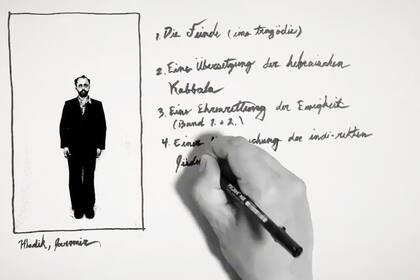 1. Die Feinde (eine tragödie)
2. Eine Übersetzung der hebraischen
Kabbala
3. Eine Ehrenrettung der Ewigkeit
(Band 1. & 2.)
4. Eine der indi-rekten
Hladik, Jaromir